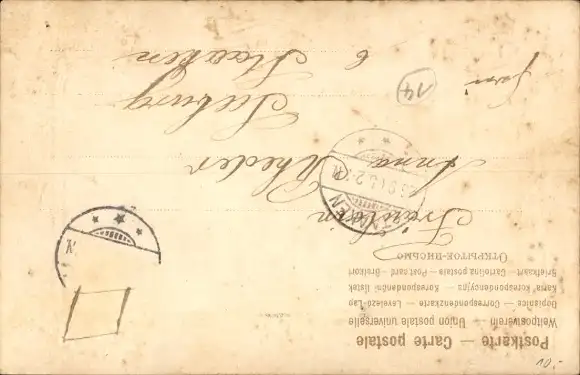 Postkarte — Carte postale
Weltpostverein — Union postale universelle
Dopisnice — Correspondenzkarte — Levelező-Lap
Karta korespondencyjna — Korespondenční lístek
Briefkaart — Cartolina postale — Post card — Brefkort
Открытое-письмо
Fräulein
Anna Rheder
Seeburg
Staaken
STAAKEN
14
10.-